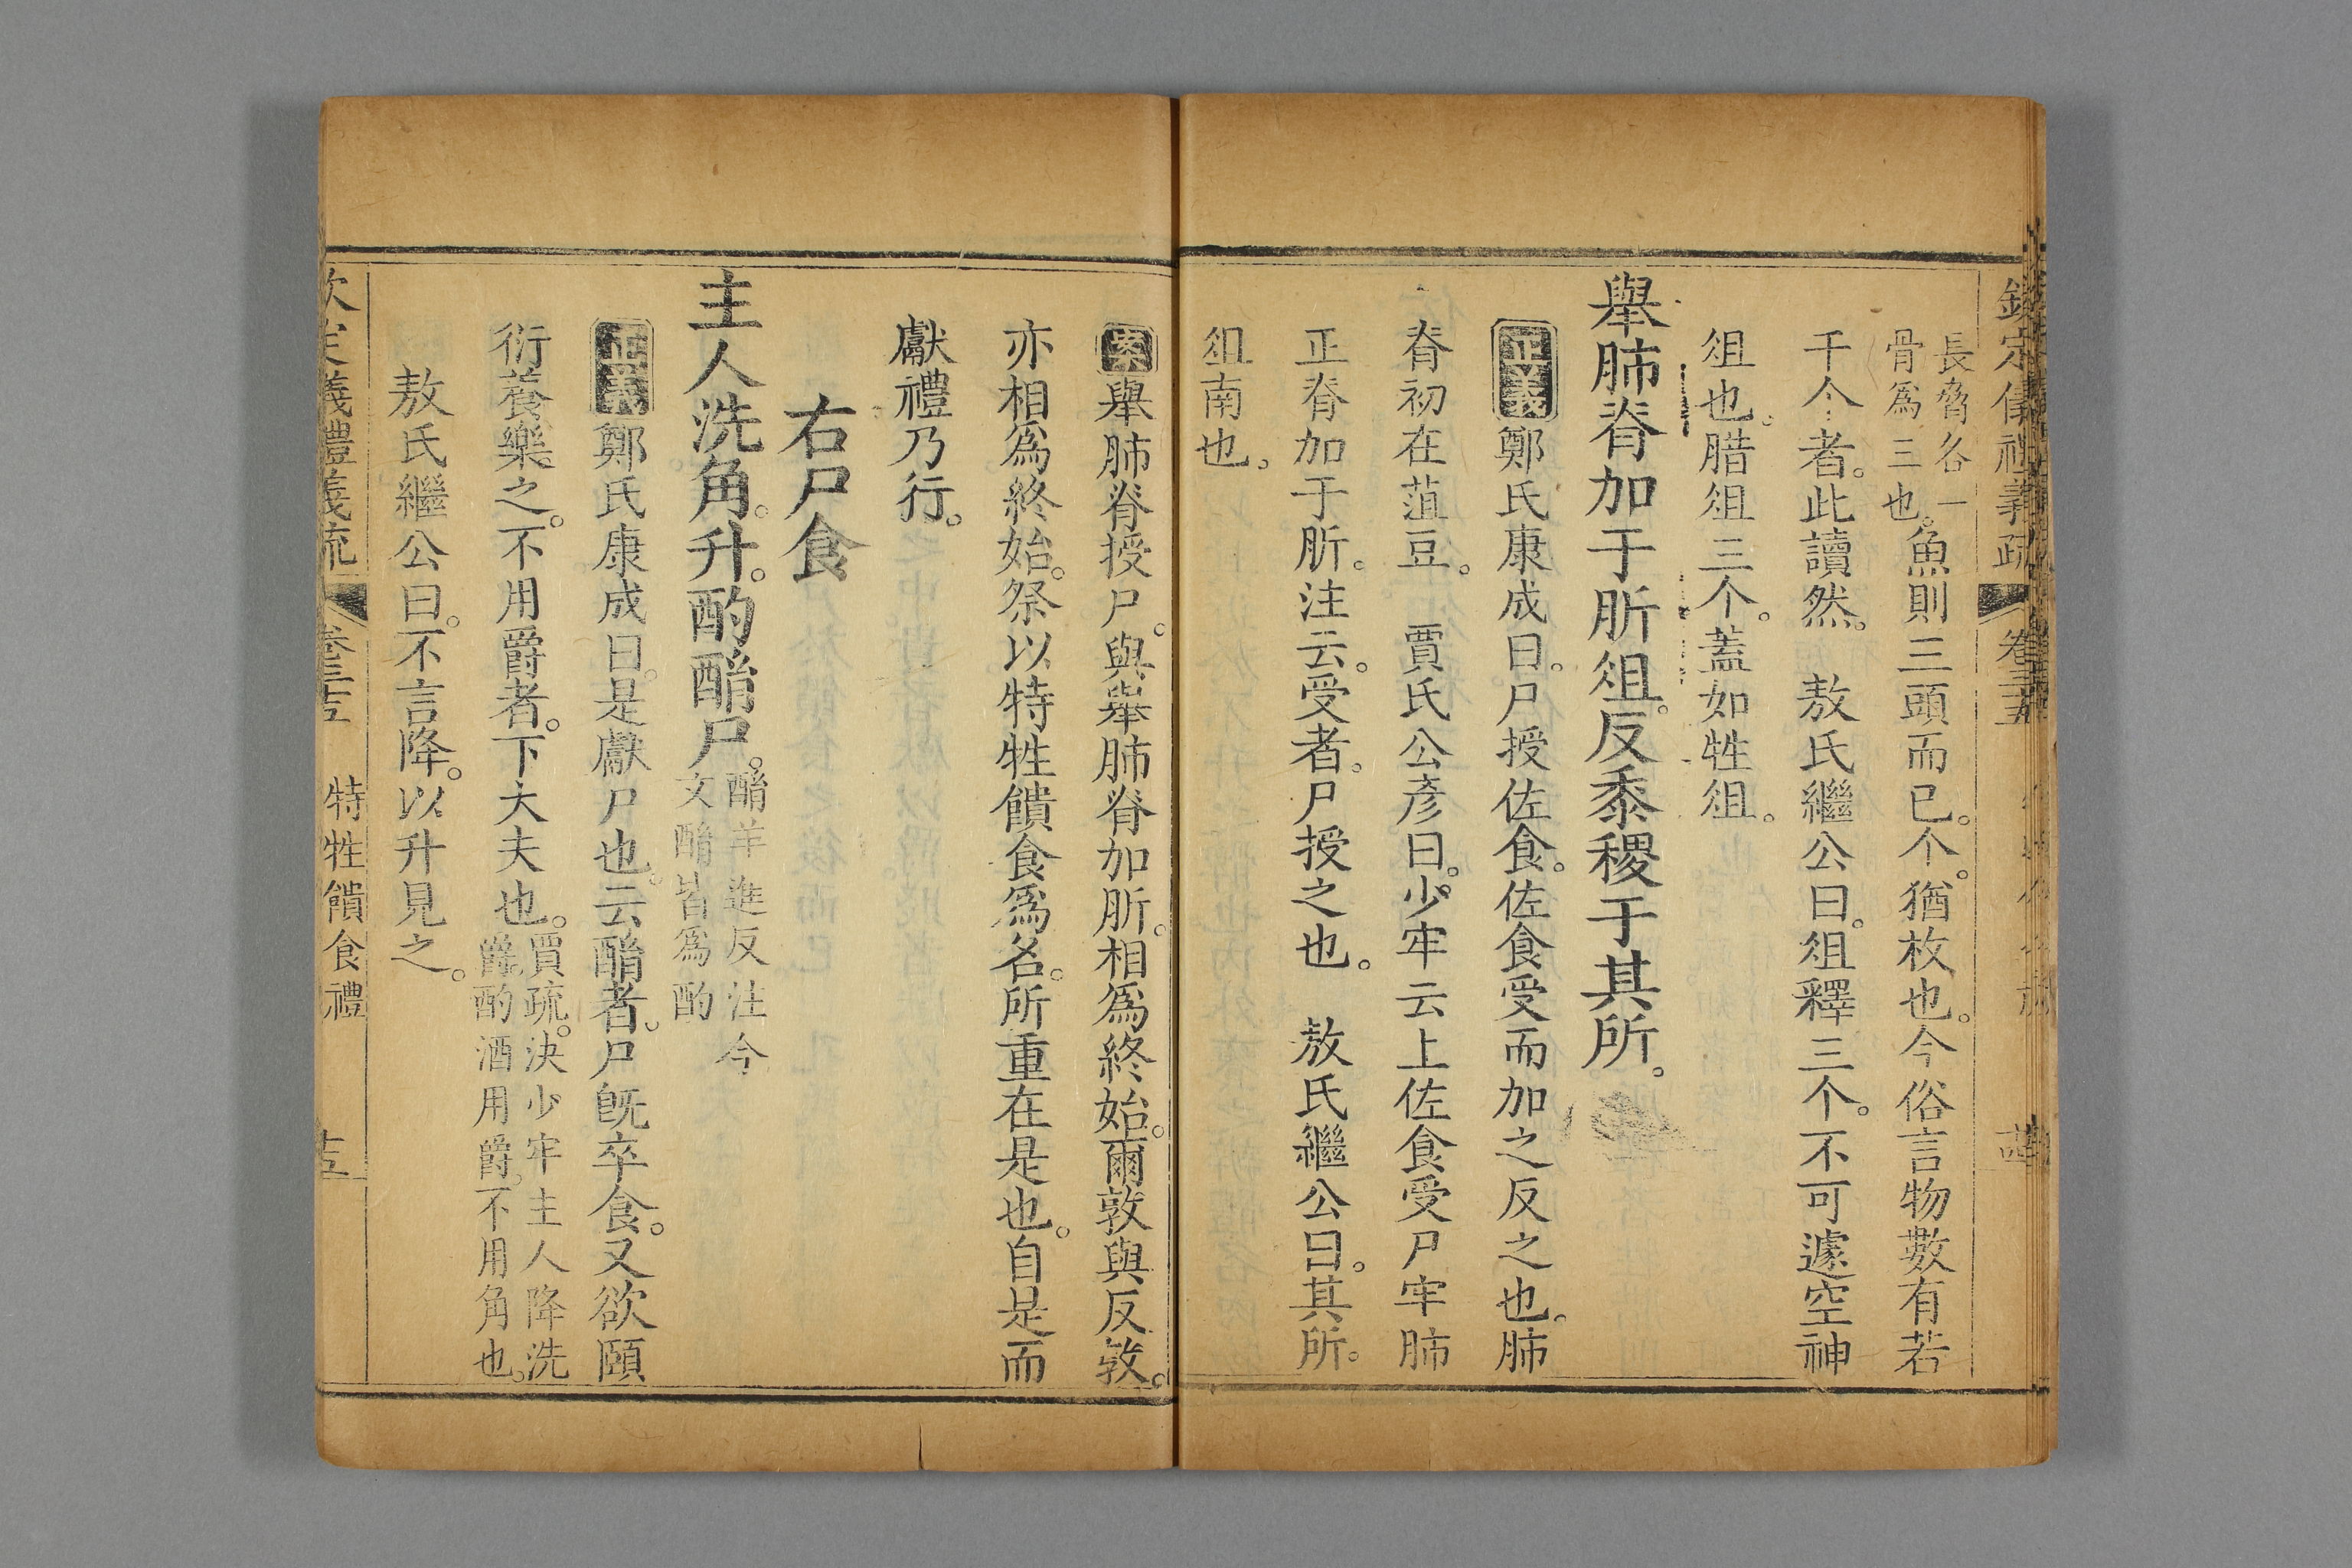 欽定儀禮義疏 卷三十五
長脅各一
骨爲三也。魚則三頭而已。个。猶枚也。今俗言物數有若
千个者。此讀然。 敖氏繼公曰。俎釋三个。不可遽空神
俎也。腊俎三个。蓋如牲俎。
舉肺脊加于肵俎。反黍稷于其所。
正義鄭氏康成曰。尸授佐食。佐食受而加之反之也。肺
脊初在菹豆。 賈氏公彥曰。少牢云上佐食受尸牢肺
正脊加于肵。注云。受者。尸授之也。 敖氏繼公曰。其所。
俎南也。
案舉肺脊授尸。與舉肺脊加肵。相爲終始。爾敦與反敦。
亦相爲終始。祭以特牲饋食爲名。所重在是也。自是而
獻禮乃行。
右尸食
主人洗角。升。酌酳尸。酳羊進反注今
文酳皆爲酌
正義鄭氏康成曰。是獻尸也。云酳者。尸旣卒食。又欲頤
衍養樂之。不用爵者。下大夫也。賈疏。決少牢主人降洗
爵酌酒用爵。不用角也。
敖氏繼公曰。不言降。以升見之。
欽定儀禮義疏 卷三十五 特牲饋食禮